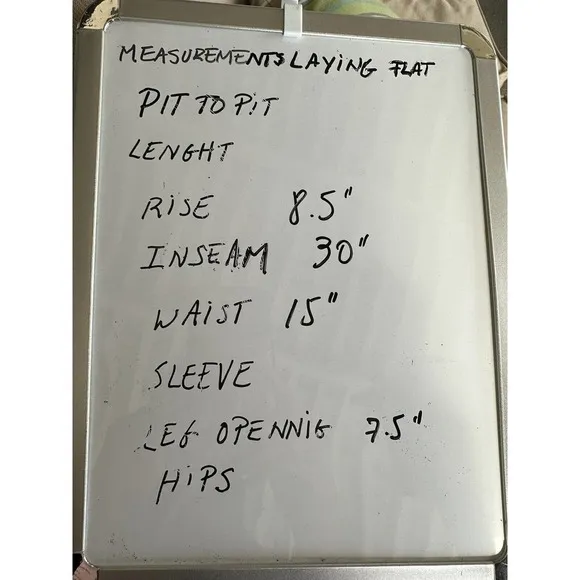 MEASUREMENTS LAYiNG FLAT
PIT TO PiT
LENGHT
RiSE 8.5"
INSEAM 30"
WAiST 15"
SLEEVE
LEG OPENNIG 7.5"
HiPS